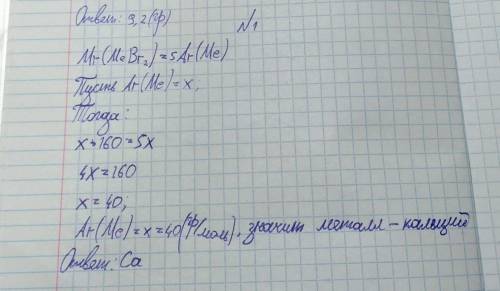 Ответ: 3,2 (гр)
N1
Mr(MeBr₂)=5Ar(Me)
Пусть Ar(Me)=x,
Тогда:
x+160=5x
4x=160
x=40;
Ar(Me)=x=40(гр/моль), значит металл - кальций
Ответ: Ca